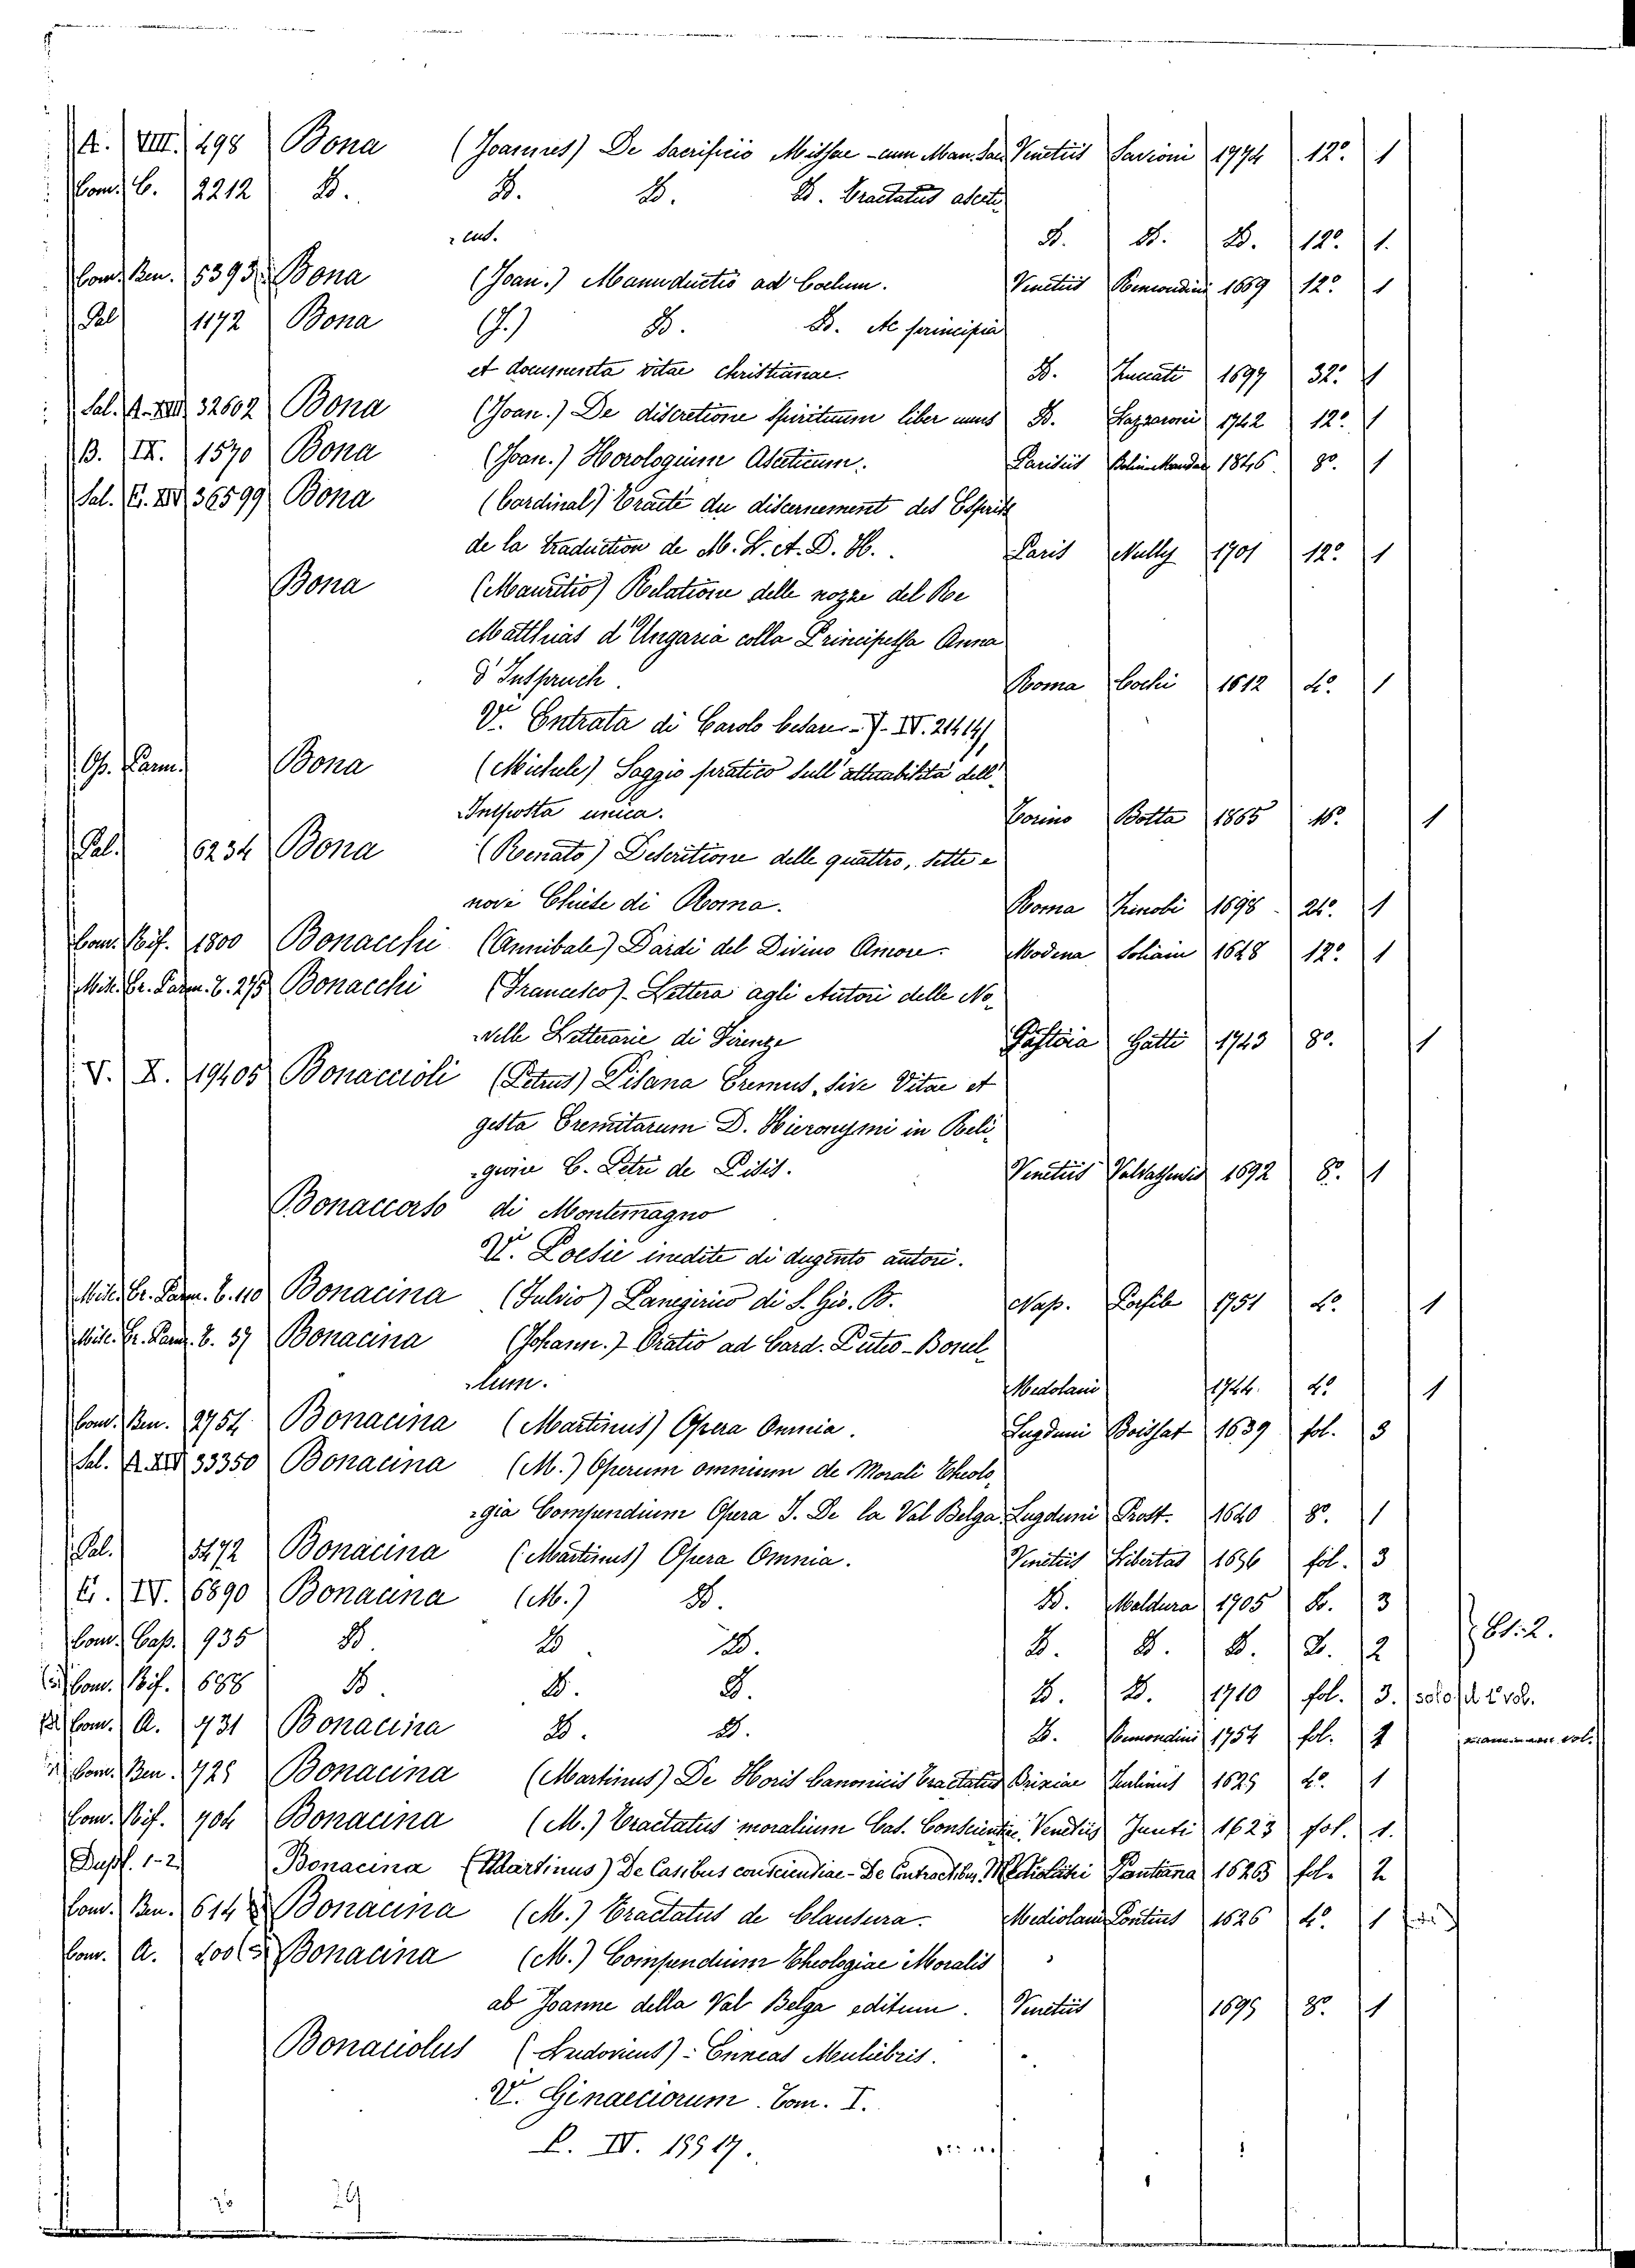 A. VIII. 498 Bona (Joannes) De Sacrificio Missae - cum Man. Sac. Venetiis Savioni 1774 12° 1
Com. C. 2212 D. D. D. D. Tractatus asceti
cus. D. D. D. 12° 1.
Com. Ben. 5393 Bona (Joan.) Manuductio ad Coelum. Venetiis Remondini 1669 12° 1
Pal 1172 Bona (J.) D. D. Ac principia
et documenta vitae christianae. D. Zuccati 1697 32° 1
Sal. A. XIII 32602 Bona (Joan.) De discretione Spirituum liber unus D. Lazzaroni 1742 12° 1
B. IX. 1570 Bona (Joan.) Horologium Asceticum. Parisiis 1846. 8° 1
Sal. E. XIV 36599 Bona (Cardinal) Traité du discernement des Esprits
de la traduction de M. L. A. D. H. Paris Nully 1701 12° 1
Bona (Mauritio) Relatione delle nozze del Re
Matthias d'Ungaria colla Principessa Anna
d'Inspruch. Roma Cochi 1612 4° 1
V. Entrata di Carolo Cesare - J. IV. 21414
Op. Parm. Bona (Michele) Saggio pratico sull'attuabilità dell'
Imposta unica. Torino Botta 1865 16° 1
Pal. 6234 Bona (Renato) Descritione delle quattro, sette e
nove Chiese di Roma. Roma Zenobi 1698 24° 1
Com. Bif. 1800 Bonacchi (Annibale) Dardi del Divino Amore. Modena Soliani 1628 12° 1
Misc. Er. Parm. B. 275 Bonacchi (Francesco) - Lettera agli Autori delle No-
velle Letterarie di Firenze Pistoia Gatti 1743 8° 1
V. X. 19405 Bonaccioli (Petrus) Pisana Eremus, sive Vitae et
gesta Eremitarum D. Hieronymi in Reli-
gione B. Petri de Pisis. Venetiis Valvasensis 1692 8° 1
Bonaccorso di Montemagno
V. Poesie inedite di dugento autori.
Misc. Er. Parm. B. 110 Bonacina (Fulvio) Panegirico di S. Gio. B. Nap. Porsile 1751 4° 1
Misc. Er. Parm. B. 37 Bonacina (Johann.) - Oratio ad Card. Puteo-Bonel-
lum. Mediolani 1744. 4° 1
Com. Ben. 2754 Bonacina (Martinus) Opera Omnia. Lugduni Boissat 1639 fol. 3
Sal. A. XIV 33350 Bonacina (M.) Operum omnium de Morali Theolo-
gia Compendium Opera J. De la Val Belga Lugduni Prost. 1640 8° 1
Pal. 5472 Bonacina (Martinus) Opera Omnia. Venetiis Libertas 1696 fol. 3
E. IV. 6890 Bonacina (M.) D. D. Maldura 1705 D. 3
Com. Cap. 935 D. D. D. D. D. D. D. 2 Ct. 2.
Com. Bif. 688 D. D. D. D. D. 1710 fol. 3. solo il 2° vol.
Com. A. 731 Bonacina D. D. D. Remondini 1754 fol. 2 vol.
Com. Ben. 729 Bonacina (Martinus) De Horis Canonicis Tractatus Brixiae Turlinus 1625 4° 1
Com. Bif. 704 Bonacina (M.) Tractatus moralium Cas. Conscientiae Venetiis Junti 1623 fol. 1.
Dupl. 1-2 Bonacina (Martinus) De Casibus conscientiae - De Contractibus Mediolani Pontana 1623 fol. 2
Com. Ben. 614 Bonacina (M.) Tractatus de Clausura. Mediolani Pontius 1626 4° 1
Com. A. Bonacina (M.) Compendium Theologiae Moralis
ab Joanne della Val Belga editum. Venetiis 1695 8° 1
Bonaciolus (Ludovicus) - Enneas Muliebris.
V. Ginaeciorum. Tom. I.
P. IV. 15517.
29